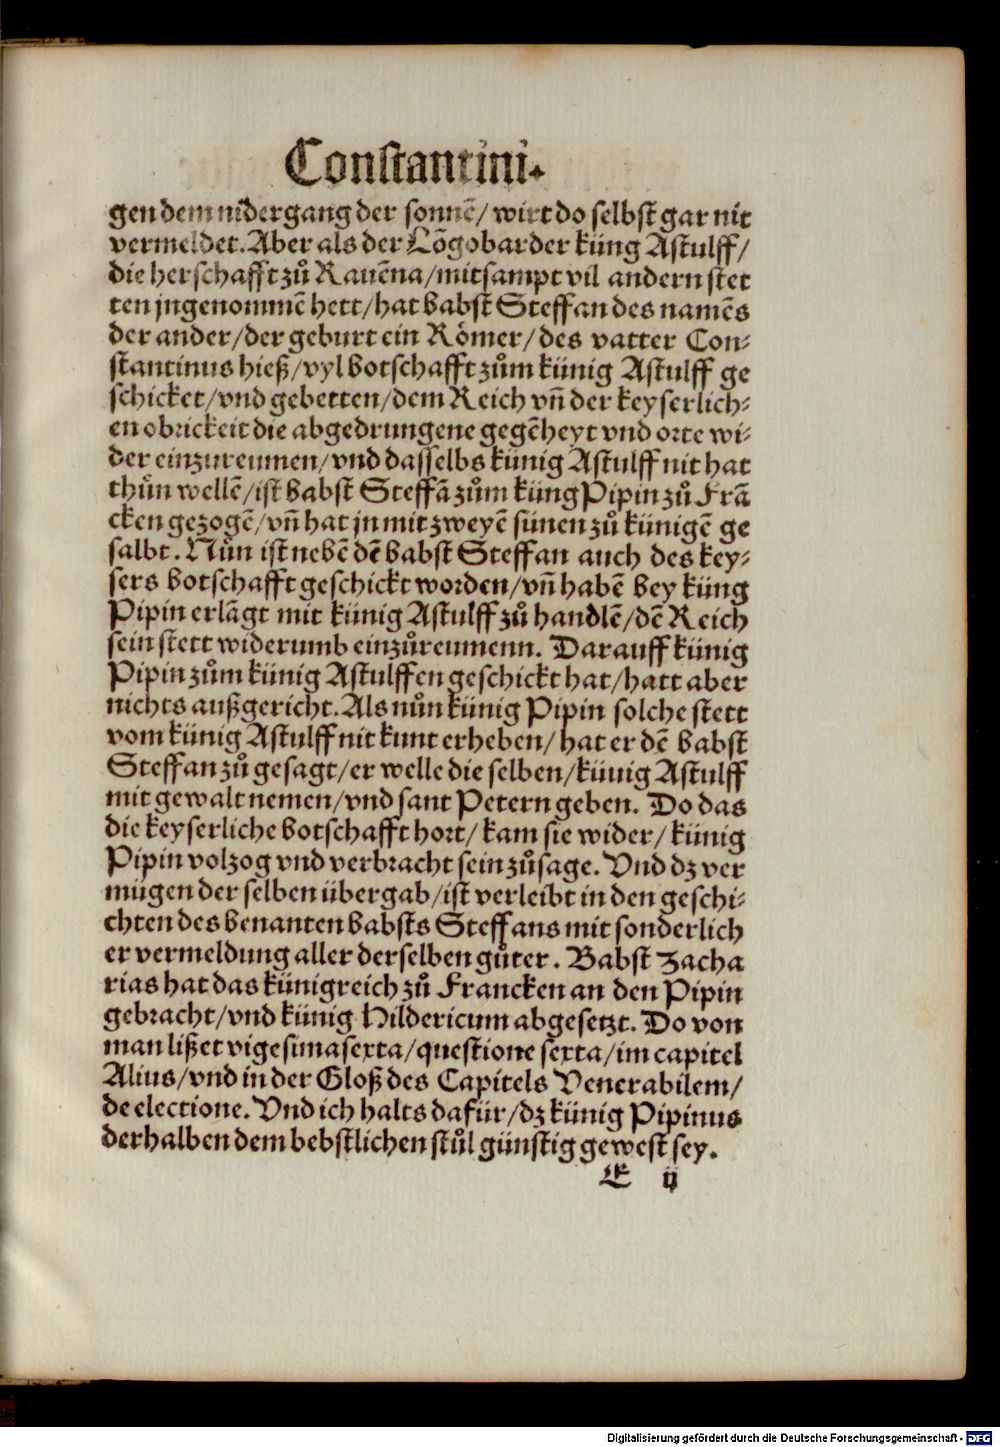 Constantini.
gen dem nidergang der sonnē/ wirt do selbst gar nit
vermeldet. Aber als der Lōgobarder küng Astulff/
die herschafft zů Rauēna/mitsampt vil andern stet
ten jngenommē hett/hat babst Steffan des namēs
der ander/der geburt ein Römer/des vatter Con-
stantinus hieß/vyl botschafft zům künig Astulff ge
schicket/vnd gebetten/dem Reich vñ der keyserlich-
en obrickeit die abgedrungene gegēheyt vnd orte wi-
der einzureumen/vnd dasselbs künig Astulff nit hat
thůn wellē/ist babst Steffā zům küng Pipin zů Frā
cken gezogē/vñ hat jn mit zweyē sünen zů künigē ge
salbt. Nůn ist nebē dē babst Steffan auch des key-
sers botschafft geschickt worden/vñ habē bey küng
Pipin erlāgt mit künig Astulff zů handlē/dē Reich
sein stett widerumb einzůreumenn. Darauff künig
Pipin zům künig Astulffen geschickt hat/hatt aber
nichts außgericht. Als nůn künig Pipin solche stett
vom künig Astulff nit kunt erheben/ hat er dē babst
Steffan zů gesagt/er welle die selben/küuig Astulff
mit gewalt nemen/vnd sant Petern geben. Do das
die keyserliche botschafft hort/kam sie wider/künig
Pipin volzog vnd verbracht sein zůsage. Vnd dz ver
mügen der selben übergab/ist verleibt in den geschi-
chten des benanten babsts Steffans mit sonderlich
er vermeldung aller derselben gůter. Babst Zacha
rias hat das künigreich zů Francken an den Pipin
gebracht/vnd künig Hildericum abgesetzt. Do von
man lißet vigesimasexta/questione sexta/im capitel
Alius/vnd in der Gloß des Capitels Venerabilem/
de electione. Vnd ich halts dafür/dz künig Pipinus
derhalben dem bebstlichen stůl günstig gewest sey.
E ij
Digitalisierung gefördert durch die Deutsche Forschungsgemeinschaft - DFG